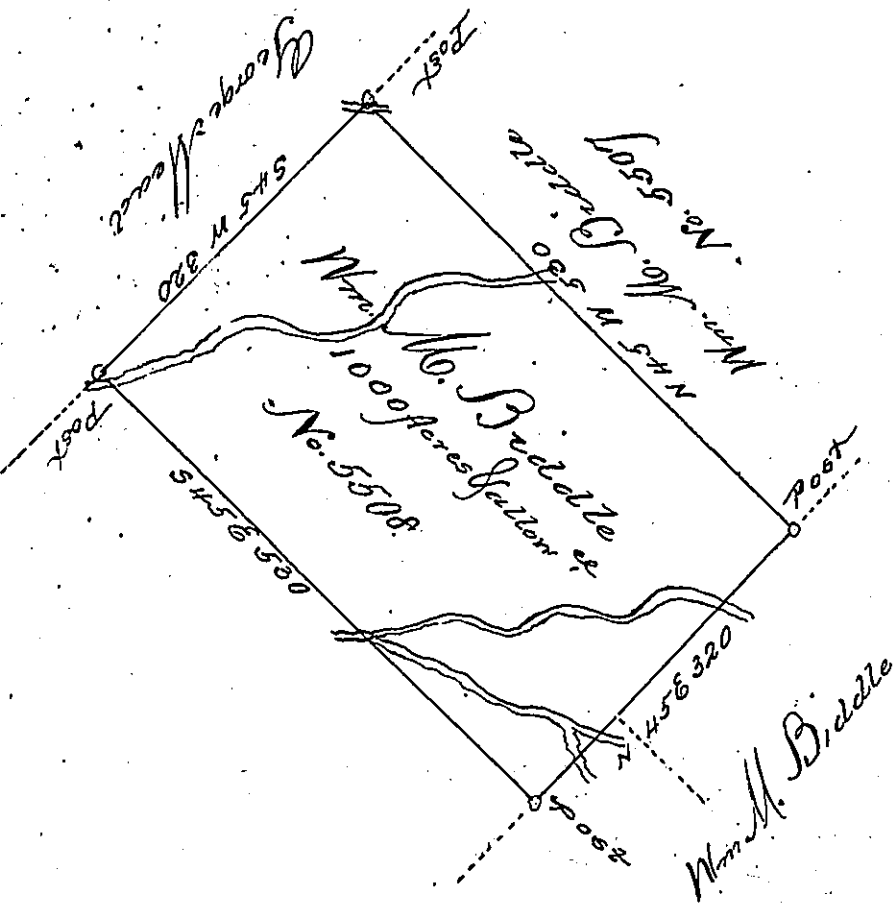 George Mead.
Post
S 45 W 320
Wm. M. Biddle
No. 5507
N 45 W 530
Wm. M. Biddle
1000 Acres & allow ce
No. 5508.
Post
S 45 E 530
Post
N 45 E 320
Post
Wm M. Biddle